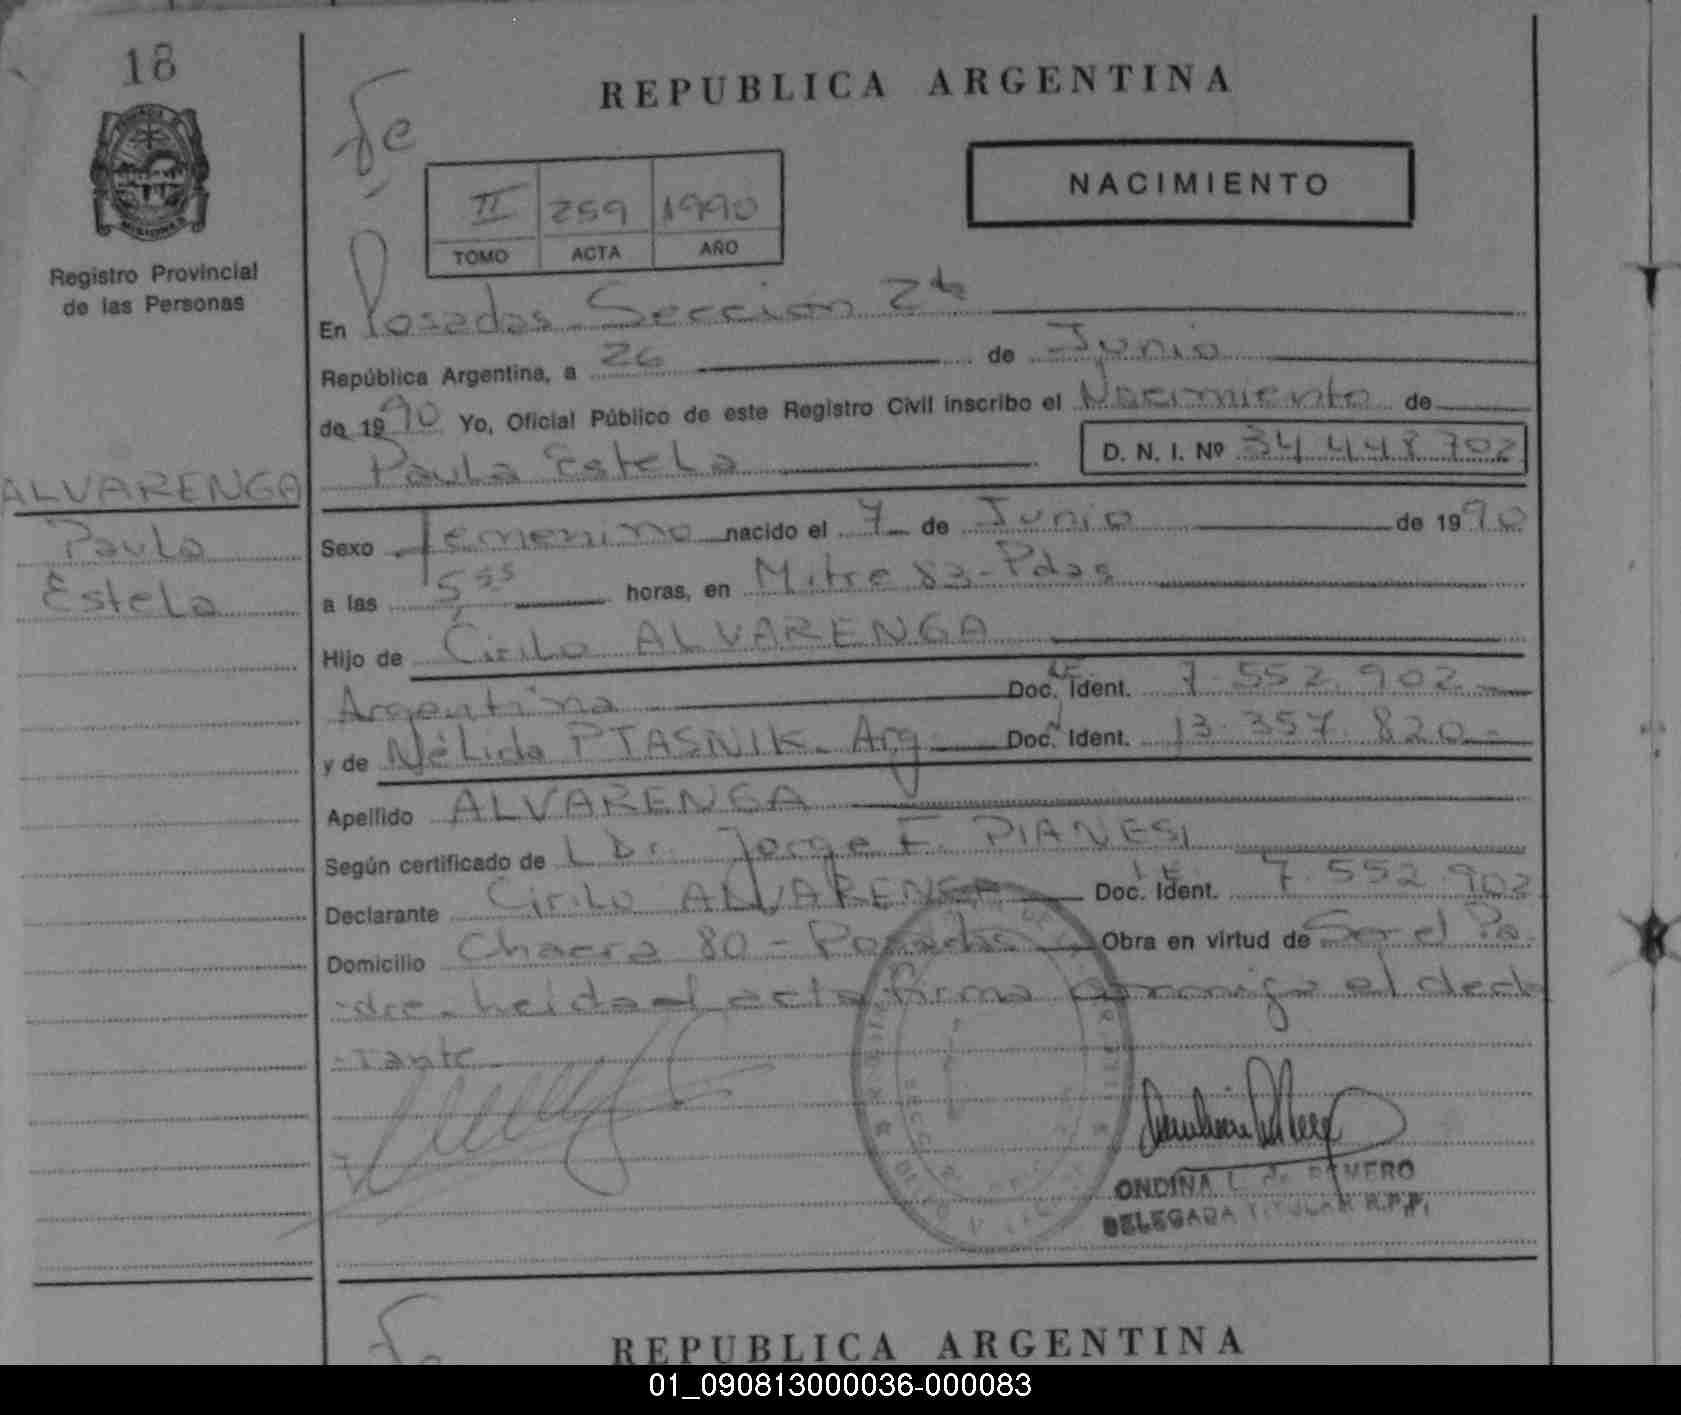 18
Registro Provincial
de las Personas
ALVARENGA
Paula
Estela
REPUBLICA ARGENTINA
Fe
NACIMIENTO
II 259 1990
TOMO ACTA AÑO
En Posadas Sección 2da
República Argentina, a 26 de Junio
de 1990 Yo, Oficial Público de este Registro Civil inscribo el Nacimiento de
Paula Estela
D. N. I. Nº 34.448.702
Sexo femenino nacido el 7 de Junio de 1990
a las 5 55 horas, en Mitre 83-Pdas
Hijo de Cirilo ALVARENGA
Argentina Doc. Ident. 7.552.902
y de Nélida PTASNIK. Arg Doc. Ident. 13.357.820
Apellido ALVARENGA
Según certificado de L Dr. Jorge F. PIANESI
Declarante Cirilo ALVARENGA Doc. Ident. 7.552.902
Domicilio Chacra 80 - Posadas Obra en virtud de Ser el Pa
dre. Leida el acta firma conmigo el decla
rante
ONDINA L. de ROMERO
DELEGADA TITULAR R.P.P.
REPUBLICA ARGENTINA
01_090813000036-000083